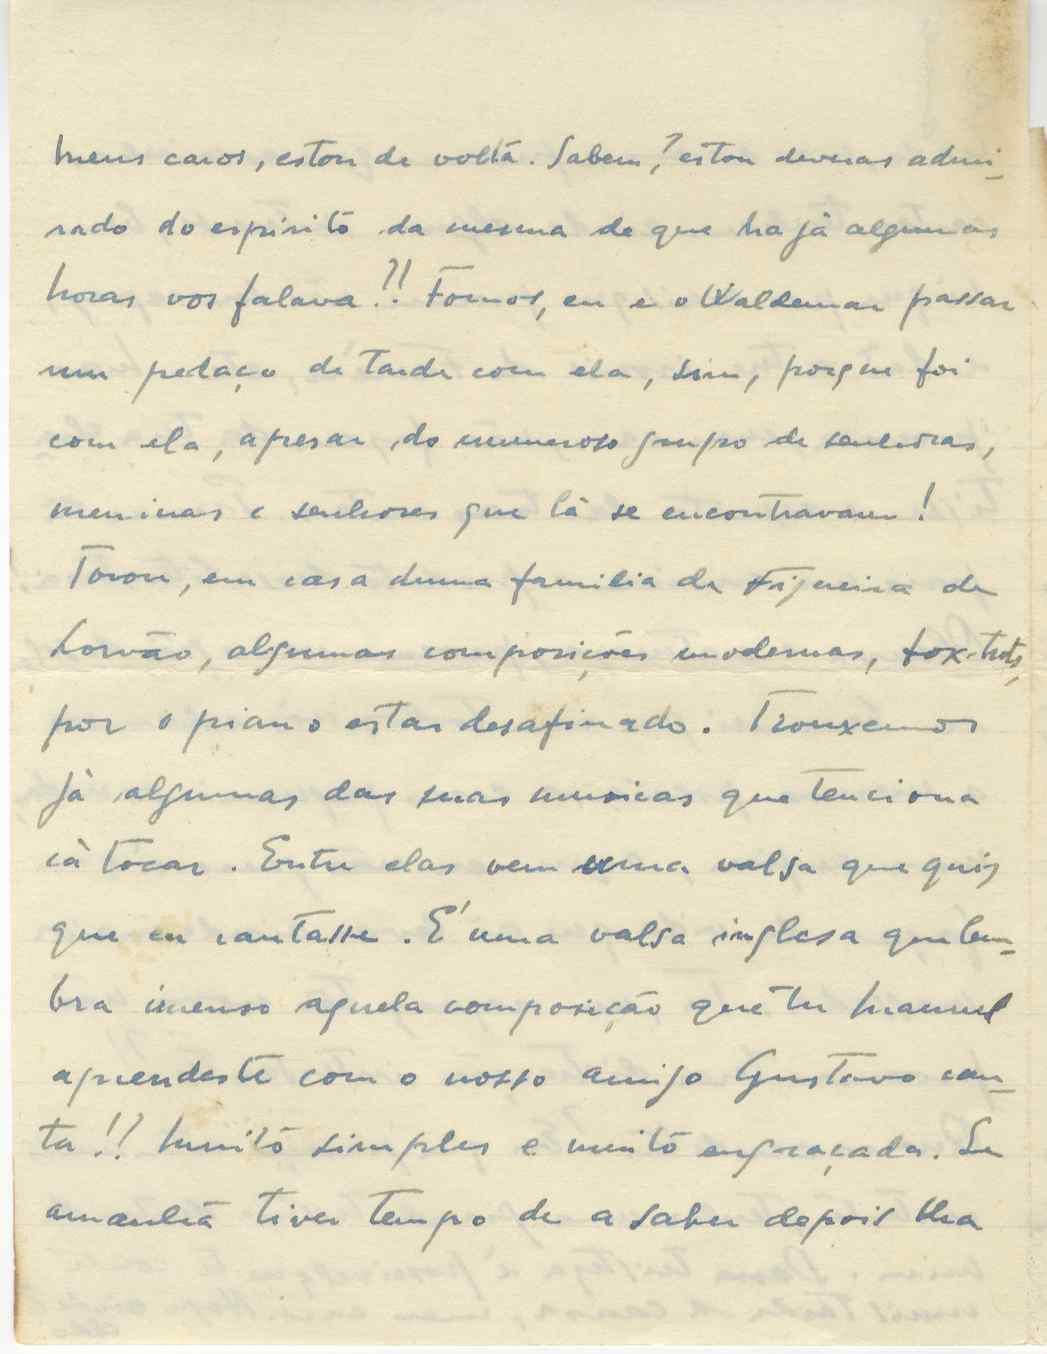 Meus caros, estou de voltà. Sabem? estou deveras admi-
rado do espiritò da mesma de que ha jà algumas
horas vos falava!! Fomos, eu e o Waldemar passar
um pedaço de tarde com ela, sim, porque foi
com ela, apesar do numeroso grupo de senhoras,
meninas e senhores que là se encontravam!
Tocou, em casa duma familia da Figueira de
Lorvão, algumas composições modernas, fox-trots,
por o piano estar desafinado. Trouxemos
jà algumas das suas musicas que tenciona
cà tocar. Entre elas vem uma valsa que quis
que eu cantasse. É uma valsa inglesa que lem-
bra imenso aquela composição que tu Manuel
aprendeste com o nosso amigo Gustavo can-
ta!! Muitò simples e muitò engraçada. Se
amanhã tiver tempo de a saber depois lha